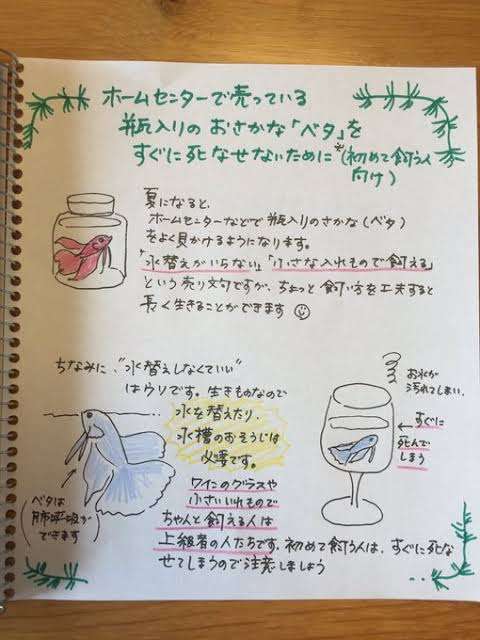 ホームセンターで売っている
瓶入りの おさかな「ベタ」を
すぐに 死なせないために*(初めて飼う人
向け)
夏になると、
ホームセンターなどで 瓶入りのさかな(ベタ)
をよく見かけるようになります。
「水替えがいらない」「小さな入れもので飼える」
という売り文句ですが、ちょっと飼い方を工夫すると
長く生きることができます
ちなみに、"水替えしなくていい"
はウソです。生きものなので
水を替えたり、
水槽のおそうじは
必要です。
ベタは
肺呼吸が
できます
お水が
汚れてしまい、
←すぐに
死んで
しまう
ワインのグラスや
小さいいれもので
ちゃんと飼える人は
上級者の人たちです。初めて飼う人は、すぐに死な
せてしまうので注意しましょう
...